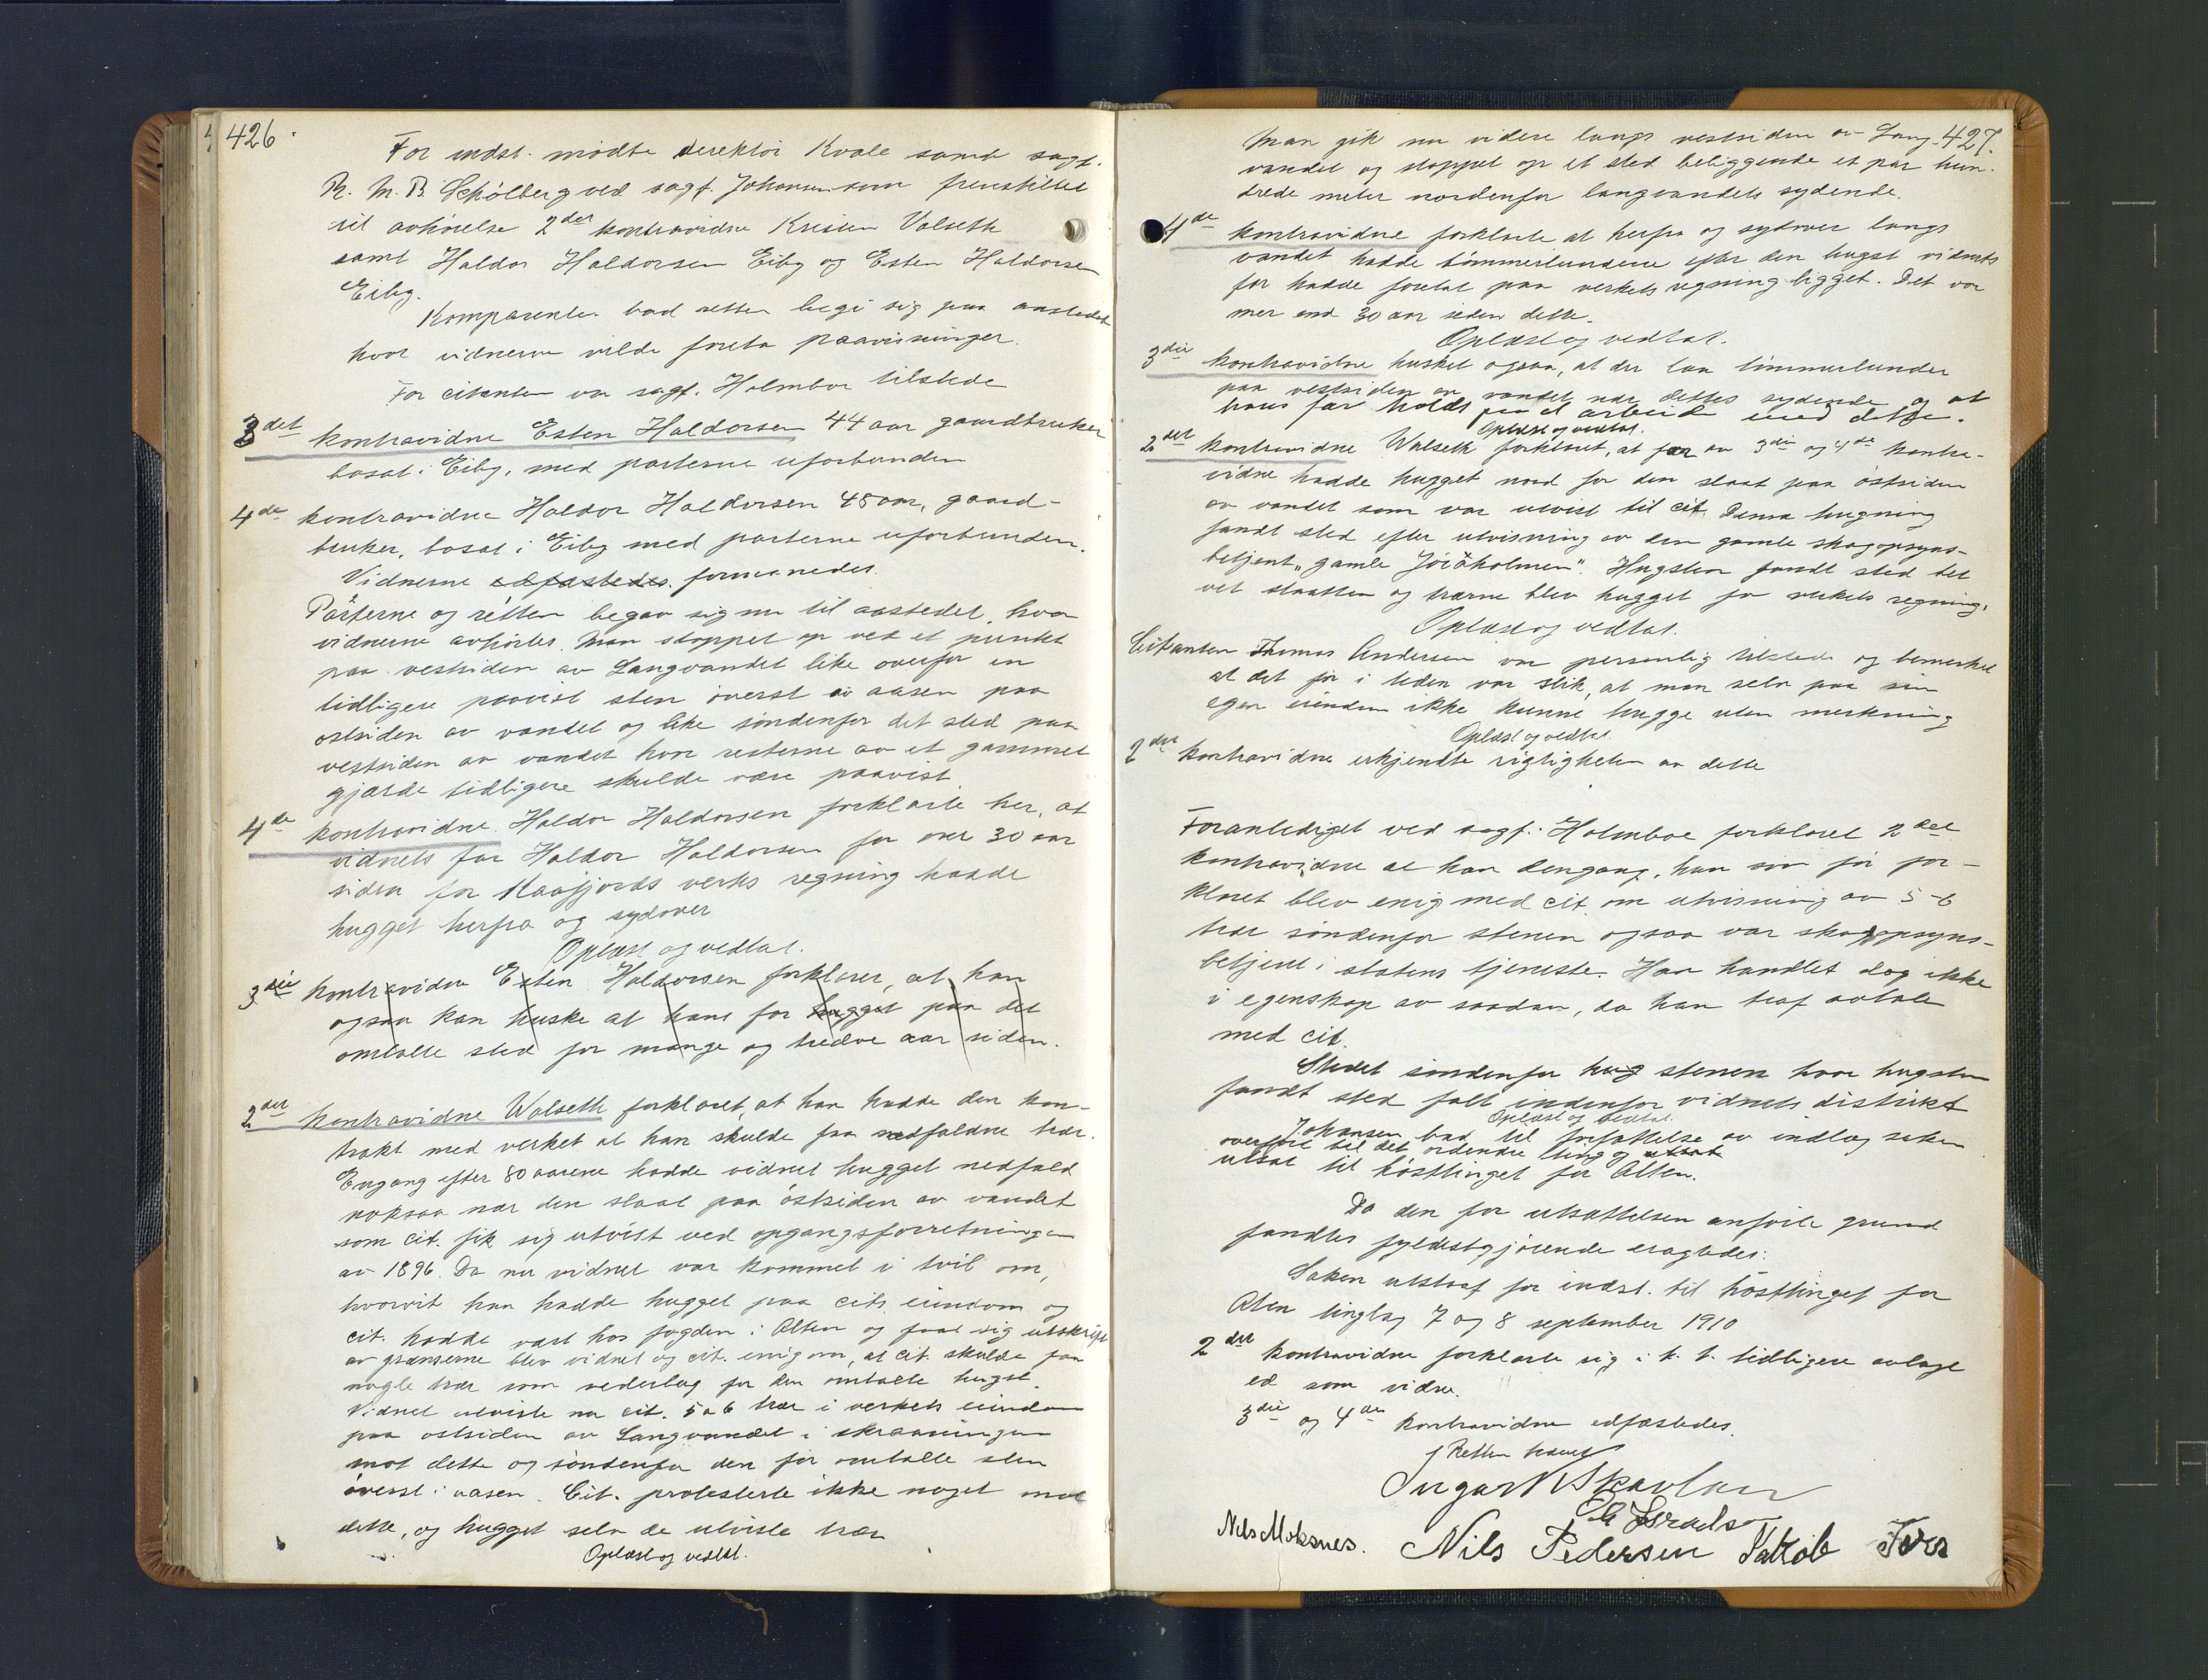 426.
For indst. mødte direktör Kvale samt sagf.
R. M. B. Schölberg ved sagf. Johansen som fremstillet
til avhörelse 2det kontravidne Kristen Valseth
samt Haldor Haldorsen Eiby og Esten Haldorsen
Eiby.
Komparenten bad retten begi sig paa aastedet
hvor vidnerne vilde foreta paavisninger.
For citanten var sagf. Holmboe tilstede
3det kontravidne Esten Haldorsen 44 aar gaardbruker
bosat i Eiby, med parterne uforbunden
4de kontravidne Haldor Haldorsen 48 aar, gaard-
bruker, bosat i Eiby med parterne uforbunden.
Vidnerne edfæstedes formanedes.
Parterne og retten begav sig nu til aastedet, hvor
vidnerne avhörtes. Man stoppet op ved et punkt
paa vestsiden av Langvandet like overfor en
tidligere paavist sten överst i aasen paa
östsiden av vandet og like söndenfor det sted paa
vestsiden av vandet hvor resterne av et gammelt
gjærde tidligere skulde være paavist.
4de kontravidne Haldor Haldorsen forklarte her, at
vidnets far Haldor Haldorsen for over 30 aar
siden for Kaafjords verks regning hadde
hugget herfra og sydover
Oplæst og vedtat.
3die kontravidne Esten Haldorsen forklarer, at han
ogsaa kan huske at hans far hugget paa det
omtalte sted for mange og tredve aar siden.
2det kontravidne Walseth forklaret, at han hadde den kon-
trakt med verket at han skulde faa nedfaldne trær.
Engang efter 80 aarene hadde vidnet hugget nedfald
noksaa nær den slaat paa östsiden av vandet
som cit. fik sig utvist ved opgangsforretningen
av 1896. Da nu vidnet var kommet i tvil om,
hvorvit han hadde hugget paa cits eiendom og
cit. hadde vært hos fogden i Alten og faat sig utskrift
av grænserne blev vidnet og cit. enig om, at cit. skulde faa
nogle trær som vederlag for den omtalte hugst.
Vidnet utviste nu cit. 5 a 6 trær i verkets eiendom
paa östsiden av Langvandet i skraaningen
mot dette og söndenfor den för omtalte sten
överst i aasen. Cit. protesterte ikke noget mot
dette, og hugget selv de utviste trær
Oplæst og vedtat.
427.
Man gik nu videre langs vestsiden av Lang-
vandet og stoppet op et sted beliggende et par hun-
drede meter nordenfor langvandets sydende.
4de kontravidne forklarte at herfra og sydover langs
vandet hadde tömmerlunderne efter den hugst vidnets
far hadde foretat paa verkets regning ligget. Det var
mer end 30 aar siden dette.
Oplæst og vedtat.
3die kontravidne husket ogsaa, at der laa tömmerlunder
paa vestsiden av vandet nær dettes sydende og at
hans far holdt paa at arbeide med dette.
Oplæst og vedtat.
2det kontravidne Walseth forklaret, at far av 3die og 4de kontra-
vidne hadde hugget nord for den slaat paa östsiden
av vandet som var utvist til cit. Denne hugning
fandt sted efter utvisning av den gamle skogopsyns-
betjent "gamle Joraholmen". Hugsten fandt sted tet
ved slaatten og trærne blev hugget for verkets regning.
Oplæst og vedtat.
Citanten Thomas Andersen var personlig tilstede og bemerket
at det för i tiden var slik, at man selv paa sin
egen eiendom ikke kunne hugge uten merkning
Oplæst og vedtat
2det kontravidne erkjendte rigtigheten av dette
Foranlediget ved sagf. Holmboe forklaret 2det
kontravidne at han dengang, han som för for-
klaret blev enig med cit. om utvisning av 5-6
trær söndenfor stenen ogsaa var skogopsyns-
betjent i statens tjeneste. Han handlet dog ikke
i egenskap av saadan, da han traf avtale
med cit.
Stedet söndenfor hug stenen hvor hugsten
fandt sted falt indenfor vidnets distrikt
Oplæst og vedtat.
Johansen bad til forfattelse av indlæg saken
overfört til det ordendre ting og utsat
utsat til höstthinget for Alten.
Da den for utsættelsen anförte grund
fandtes fyldestgjörende eragtedes:
Saken utstaar for indst. til höstthinget for
Alten tinglag 7 og 8 september 1910
2det kontravidne forklarte sig i h. t. tidligere avlagt
ed som vidne.
3die og 4de kontravidne edfæstedes.
Retten hævet
Nils Moksnes. Nils Pedersen Jakob Ivers